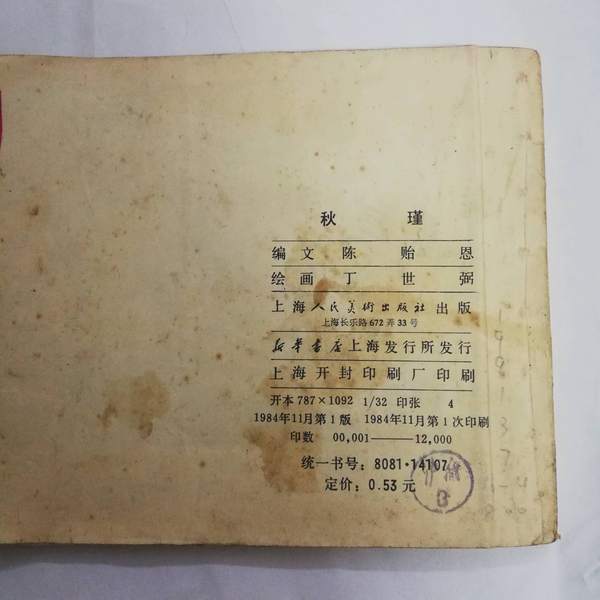 秋 瑾
编文 陈贻恩
绘画 丁世弼
上海人民美術出版社出版
上海长乐路672弄33号
新华書店上海发行所发行
上海开封印刷厂印刷
开本 787×1092 1/32 印张 4
1984年11月第1版 1984年11月第1次印刷
印数 00,001——12,000
统一书号：8081·14107
定价：0.53元